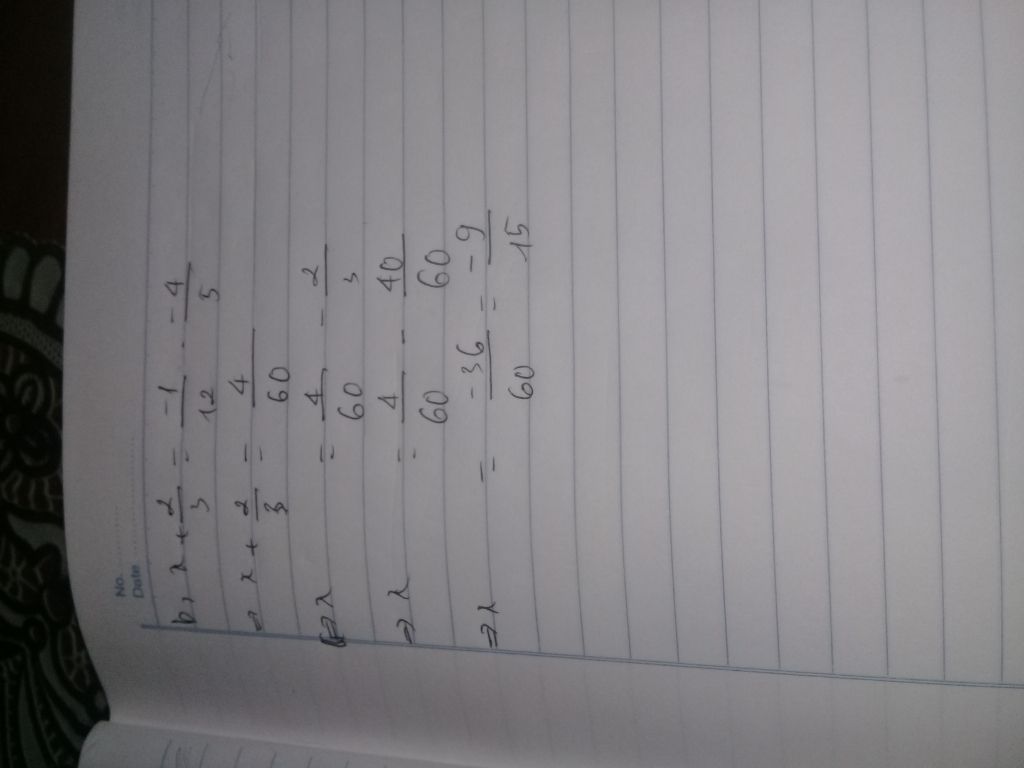 No.
Date
b, x + 2/3 = -1/12 . -4/5
=> x + 2/3 = 4/60
=> x = 4/60 - 2/3
=> x = 4/60 - 40/60
=> x = -36/60 = -9/15